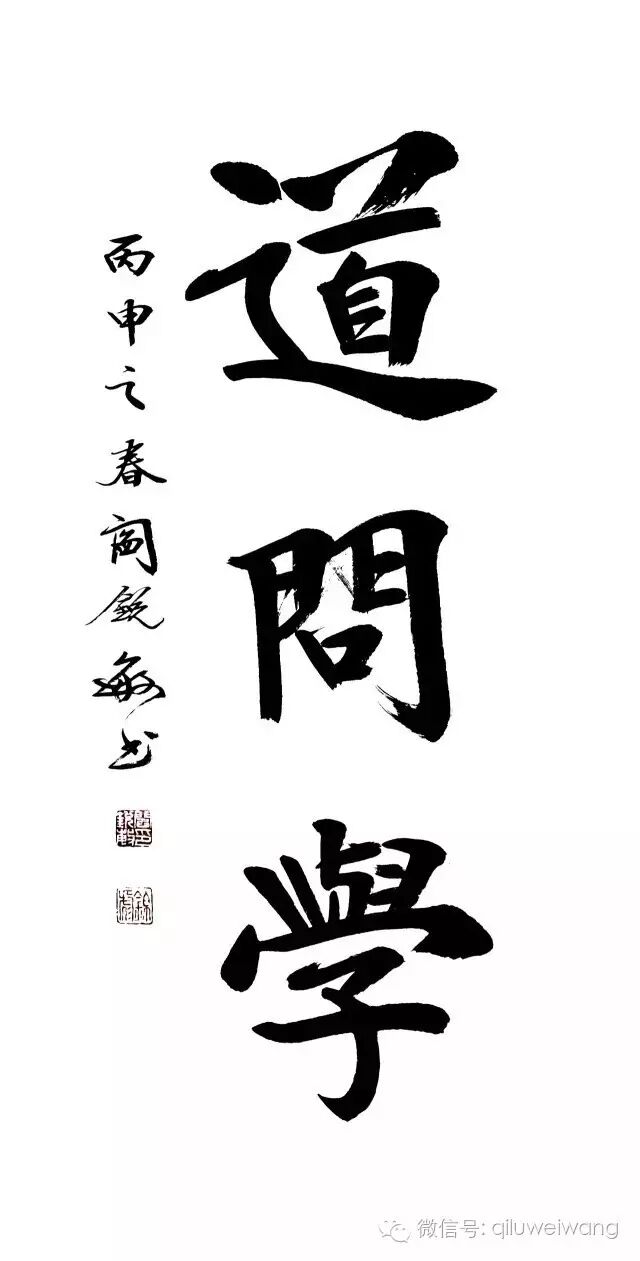 道問學
丙申之春阎銳敏书
微信号: qiluweiwang